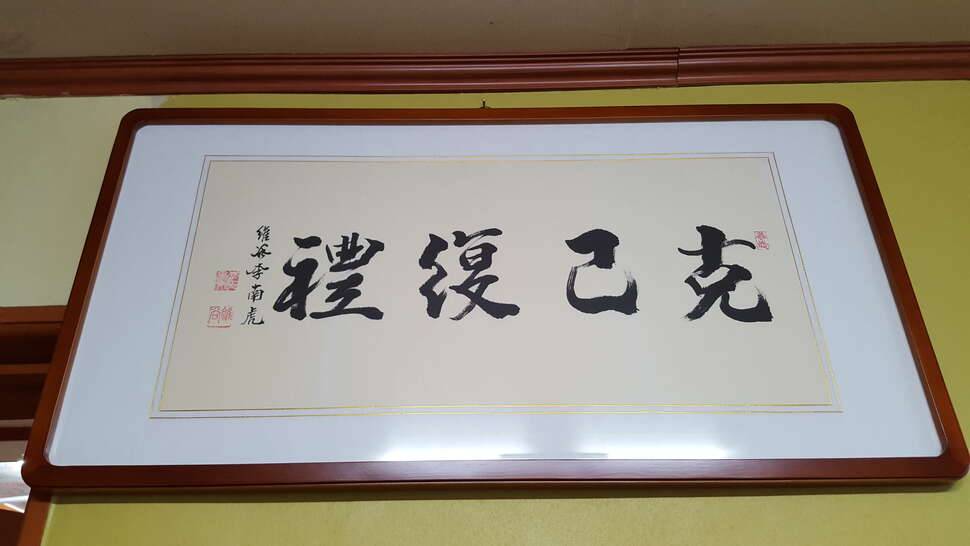 克己復禮
維谷李南虎